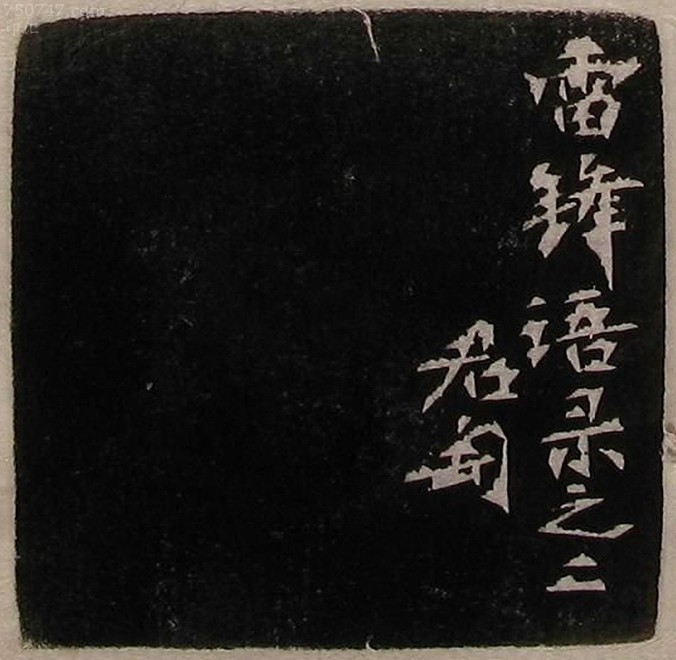 雷锋语录之二
君匋